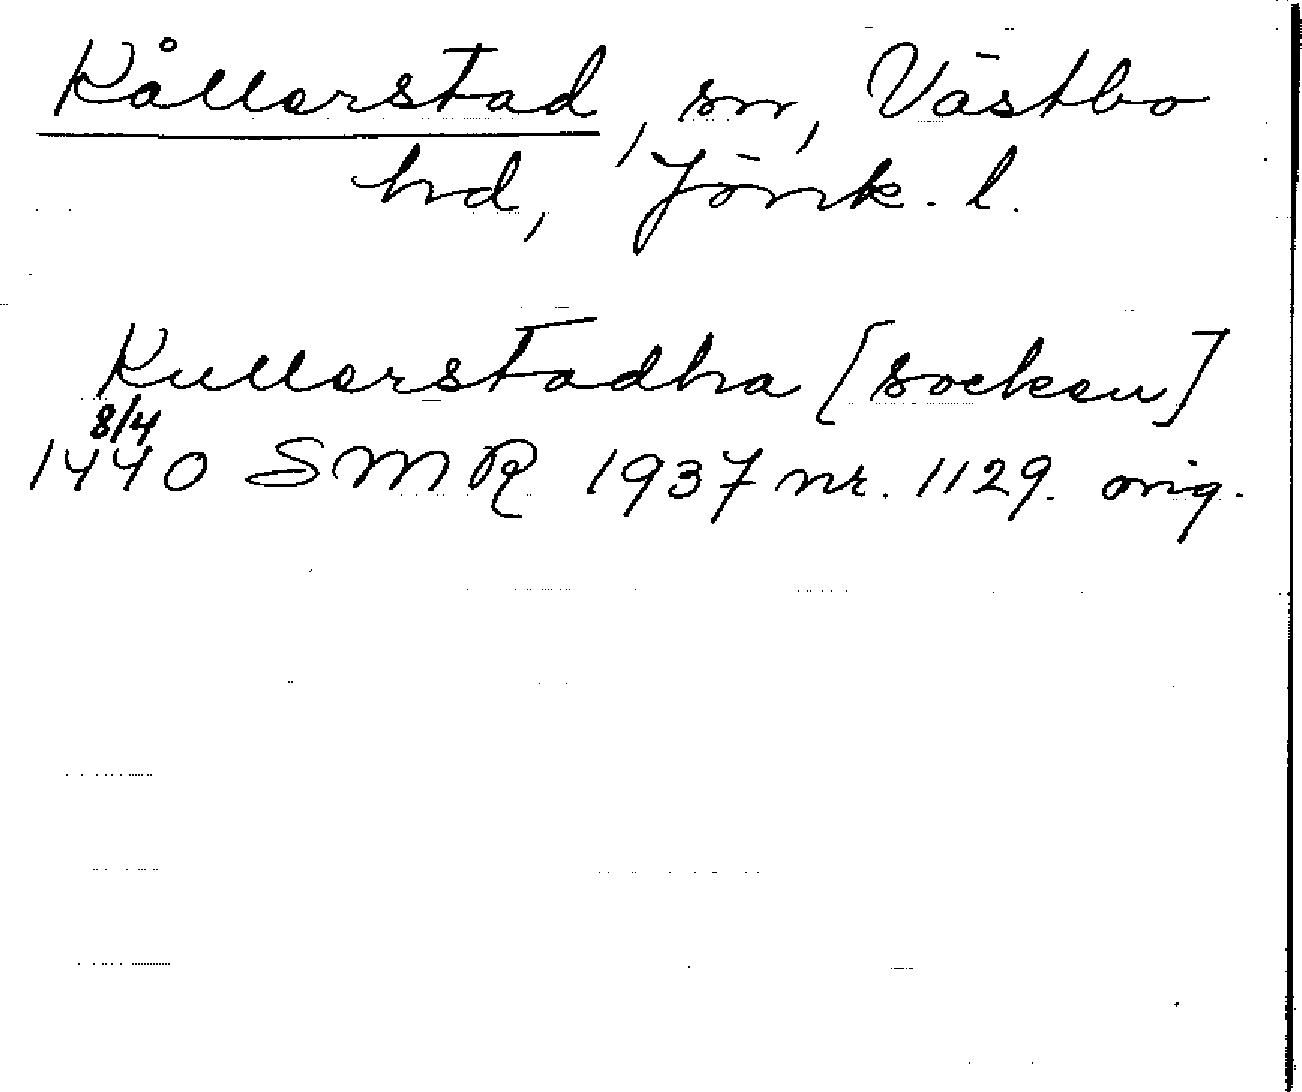 Kållerstad, sn, Västbo
hd, Jönk. l.
Kullerstadha [socken]
8/4
1440 SMR 1937 nr. 1129. orig.